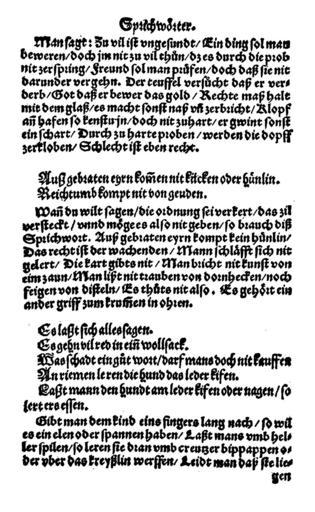 Sprichwörter.
Man sagt: Zu vil ist vngesundt/ Ein ding sol man
beweren/ doch jm nit zu vil thůn/ dz es durch die prob
nit zerspring/ Freund sol man prüfen/ doch daß sie nit
darunder vergehn. Der teuffel versücht daß er ver-
derb/ Got daß er bewer das gold/ Rechte maß hale
mit dem glaß/ es macht sonst naß vñ zerbricht/ Klopf
an hafen so kenstu jn/ doch nit zuhart/ er gwint sonst
ein schart/ Durch zu harte proben/ werden die dopff
zerkloben/ Schlecht ist eben recht.
Auß gebraten eyrn kom̃en nit kücken oder hünlin.
Reichtumb kompt nit von geuden.
Wañ du wilt sagen/ die ordnung sei verkert/ das zil
versteckt/ vnnd möge es also nit geben/ so brauch diß
Sprichwort. Auß gebraten eyrn kompt kein hünlin/
Das recht ist der wachenden/ Mann schläfft sich nit
gelert/ Die kart gibts nit/ Man bricht nit kunst von
eim zaun/ Man lißt nit trauben von dornhecken/ noch
feigen von disteln/ Es thůts nit also. Es gehört ein
ander griff zum krum̃en in ohren.
Es laßt sich alles sagen.
Es gehn vil red in ein wollsack.
Was schadt ein gůt wort/ darf mans doch nit kauffen
An riemen leren die hund das leder kifen.
Laßt mann den hundt am leder kifen oder nagen/ so
lert ers essen.
Gibt man dem kind eins fingers lang nach/ so wil
es ein elen oder spannen haben/ Laßt mans vmb hel-
ler spilen/ so leren sie dran vmb creutzer bippappen o-
der vber das kreyßlin werffen/ Leidt man daß sie lie-
gen